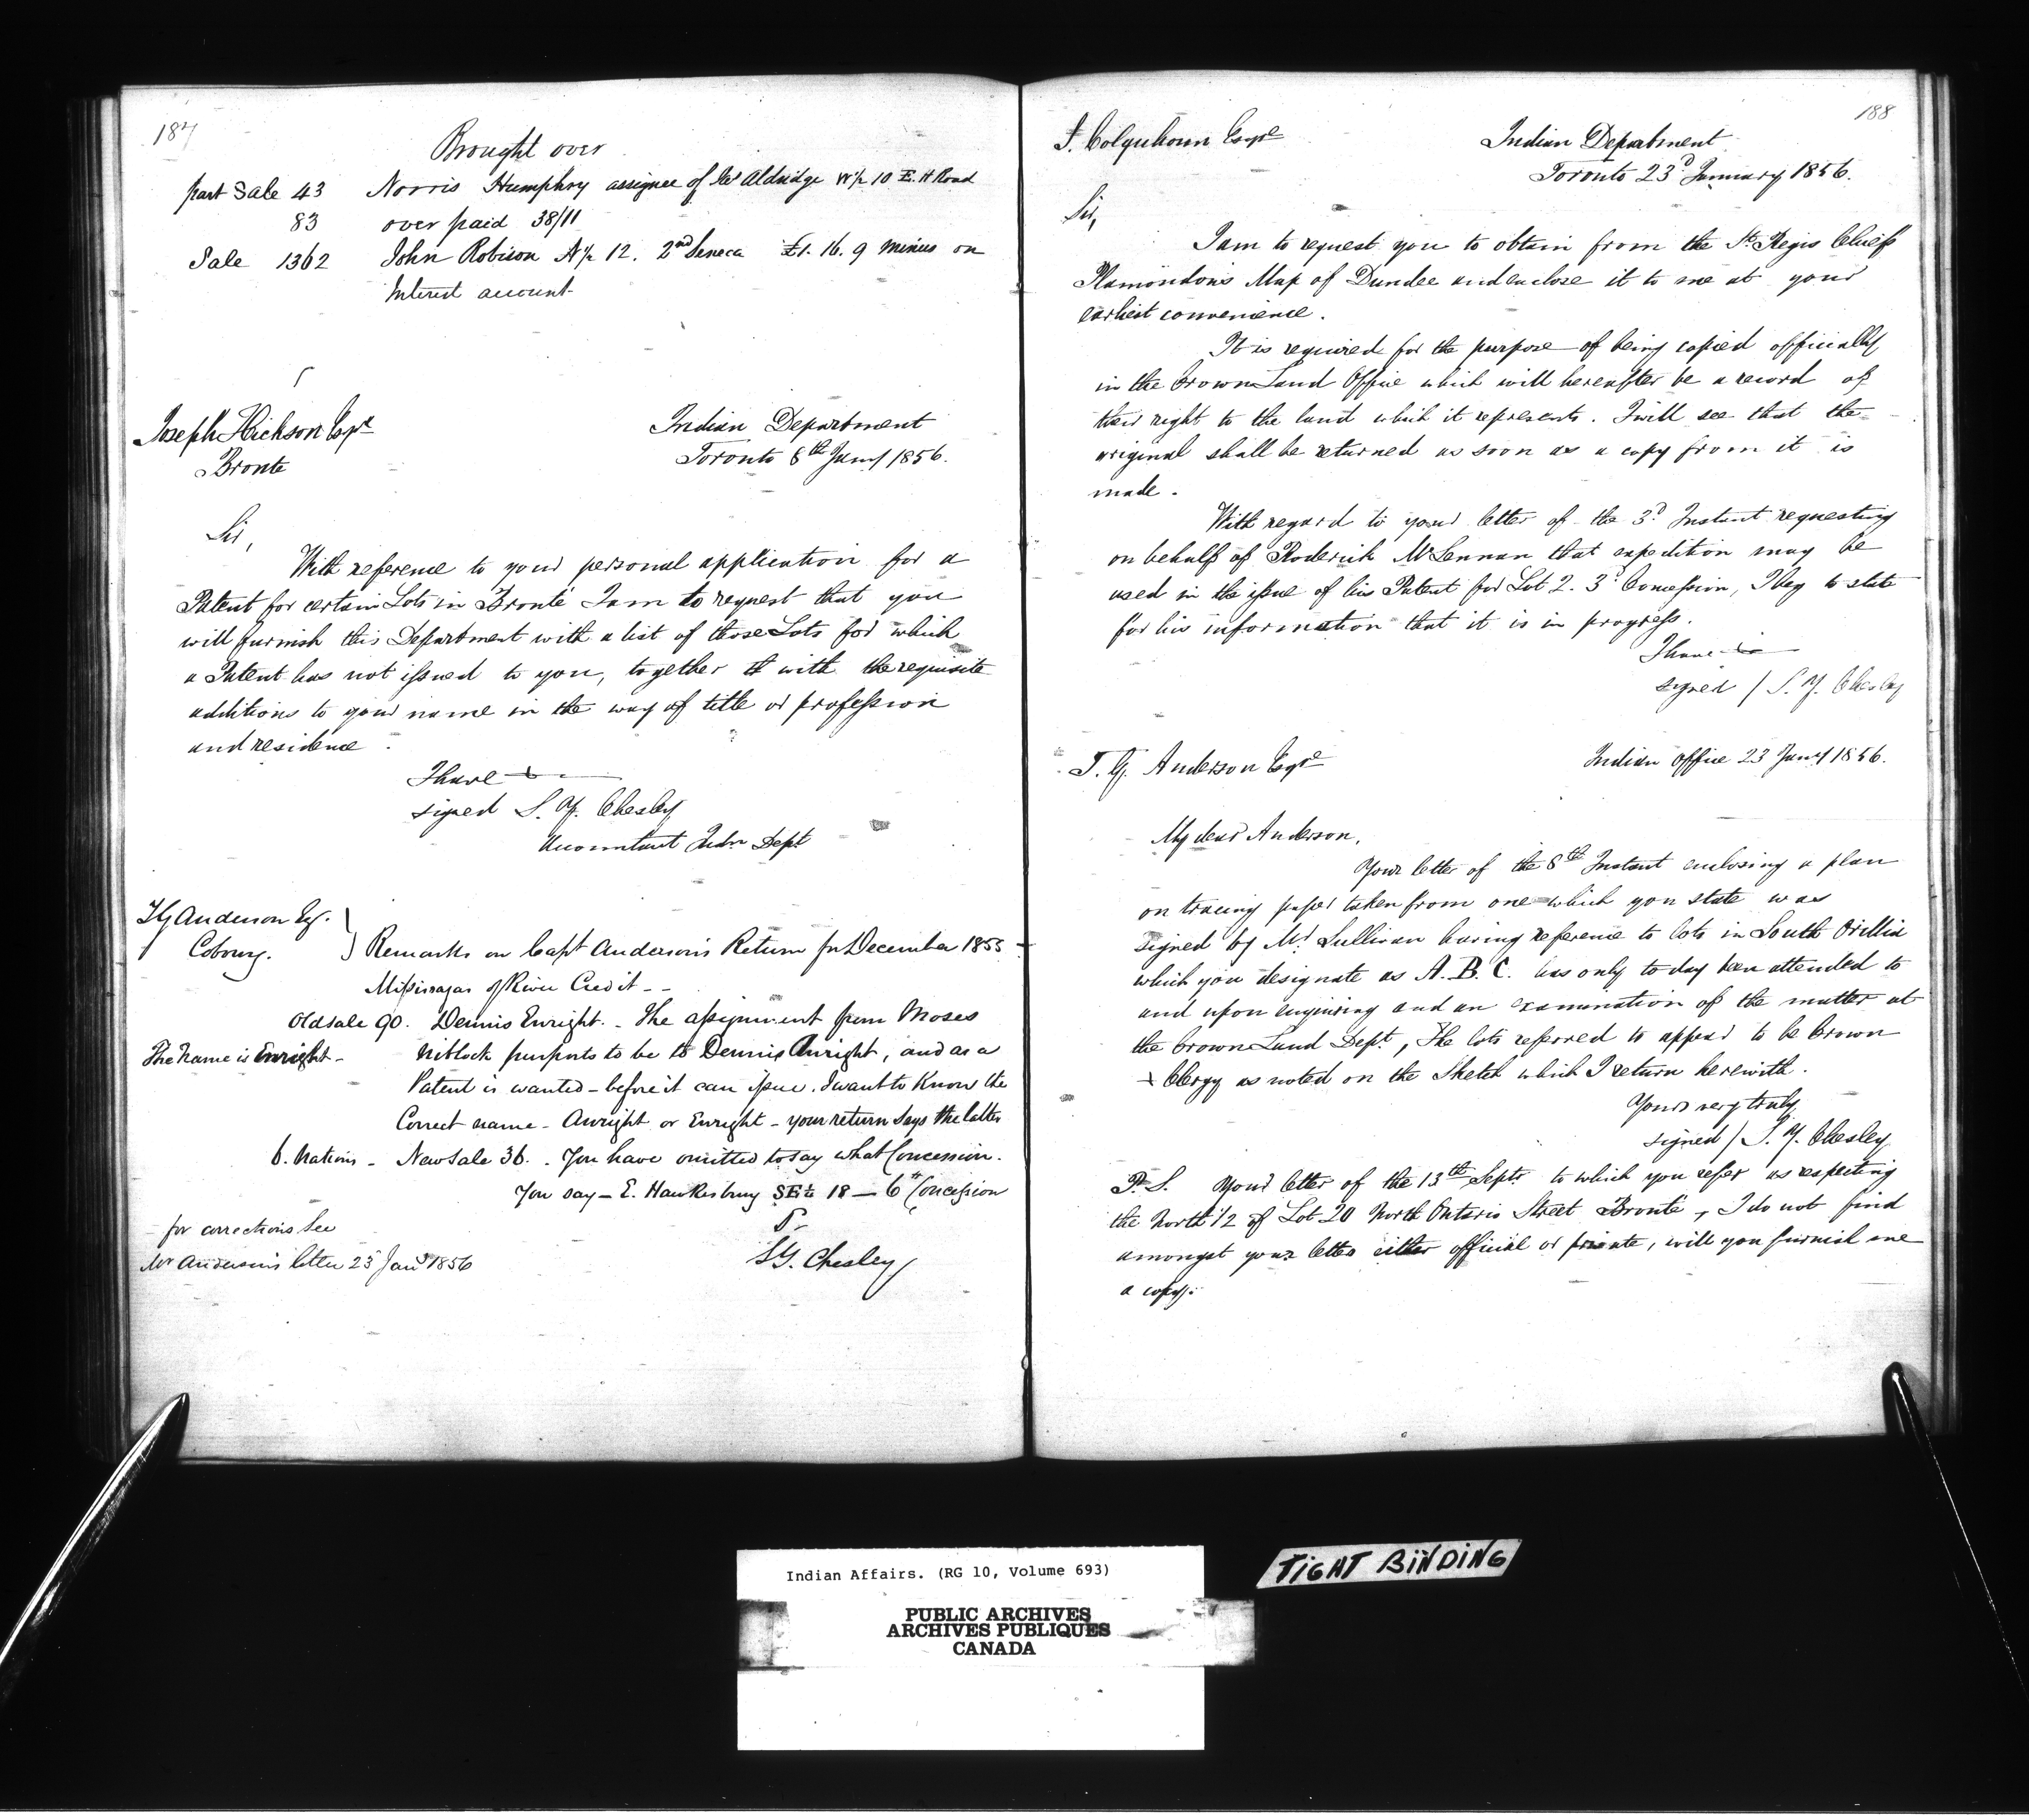 187
Brought over
part Sale 43 Norris Humphry assignee of Jas Aldridge W½ 10 E. H Road
83 over paid 38/11
Sale 1362 John Robison A/c 12. 2nd Seneca £1. 16. 9 minus on
Interest account
Joseph Hickson Esqre
Bronte
Indian Department
Toronto 8th Jany 1856.
Sir,
With reference to your personal application for a
Patent for certain Lots in Bronté I am to request that you
will furnish this Department with a list of those Lots for which
a Patent has not issued to you, together with the requisite
additions to your name in the way of title or profession
and residence.
I have
signed S. Y. Chesley
Accountant Indn Dept
T G Anderson Esq.
Cobourg.
Remarks on Capt Anderson's Return for December 1855
Missisagas of River Credit - -
Old sale 90. Dennis Enright. - The assignment from Moses
The name is Enright -
Niblock purports to be to Dennis Anright, and as a
Patent is wanted - before it can issue. I want to know the
Correct name - Anright or Enright - your return says the latter
6. Nations - New Sale 36. - You have omitted to say what Concession.
You say - E. Hawkesbury SE½ 18 - 6th Concession
for corrections see
Mr Anderson's letter 25 Jany 1856
S Y. Chesley
188
F. Colquhoun Esqre
Indian Department
Toronto 23d January 1856.
Sir,
I am to request you to obtain from the St. Regis Chiefs
Plamondon's Map of Dundee and enclose it to me at your
earliest convenience.
It is required for the purpose of being copied officially
in the Crown Land Office which will hereafter be a record of
their right to the land which it represents. I will see that the
original shall be returned as soon as a copy from it is
made.
With regard to your letter of the 3d Instant requesting
on behalf of Roderick McLennan that expedition may be
used in the issue of his Patent for Lot 2. 3d Concession, I beg to state
for his information that it is in progress.
I have
signed / S. Y. Chesley
T. G. Anderson Esqre
Indian office 23 Jany 1856.
My dear Anderson,
Your letter of the 8th Instant enclosing a plan
on tracing paper taken from one which you state was
signed by Mr Sullivan having reference to lots in South Orillia
which you designate as A. B. C. has only to day been attended to
and upon enquiring and an examination of the matter at
the Crown Land Dept, The lots referred to appear to be Crown
+ Clergy as noted on the Sketch which I return herewith.
Yours very truly
signed / S. Y. Chesley
P. S. Your letter of the 13th Septr to which you refer as respecting
the North 1/2 of Lot 20 North Ontario Street Bronté, I do not find
amongst your letters either official or private, will you furnish me
a copy.
Indian Affairs. (RG 10, Volume 693)
PUBLIC ARCHIVES
ARCHIVES PUBLIQUES
CANADA
TIGHT BINDING